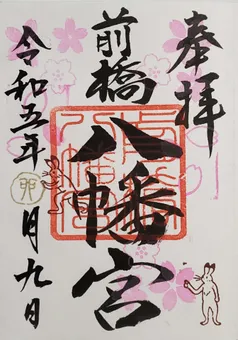 奉拝
前橋
八幡宮
令和五年卯月九日